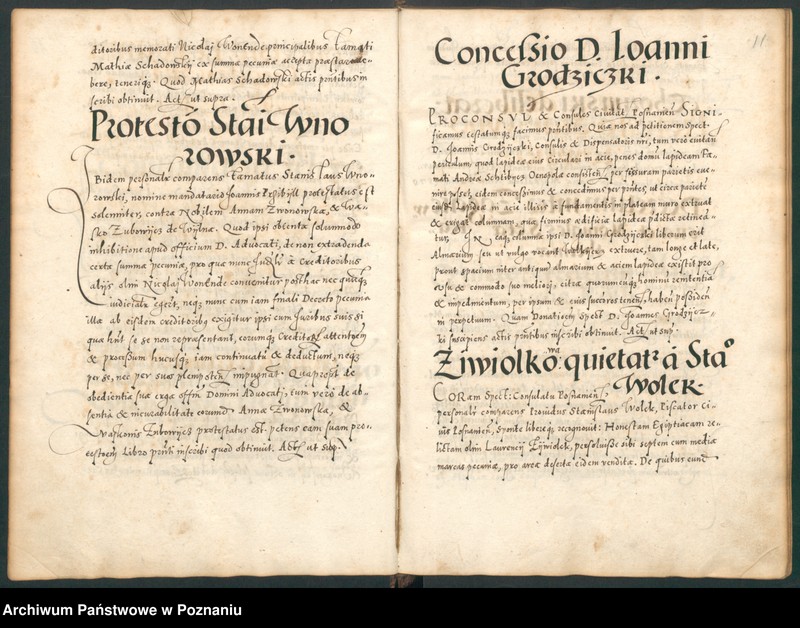 ditoribus memorati Nicolaj Wonende principalibus famati
Mathiæ Schadowskij ex summa pecuniæ accepta præstare de-
bere, teneriq3. Quod Mathias Schadowski actis pntibus in
scribi obtinuit. Act ut supra.
Protesto Stai Wno
rowski.
Ibidem personalr comparens famatus Stanislaus Wno-
rowski, nomine mandatario Joannis protestatus est
solenniter, contra Nobilem Annam Zwonowska, & Wa-
sko Zubowijcz de Wijlna. Quod ipsi obtenta solummodo
inhibitione apud officium D. Advocati, de non extradenda
certa summa pecuniæ, pro qua nunc a Creditoribus
alijs olim Nicolaj Wonende convenitur posthac nec quicq3
iudicialr egert, neq3 nunc cum iam finali Decreto pecunia
illa ab eisdem creditoribus exigitur ipsi cum Juribus suis si
qua hnt se se non repræsentant, eorumq3 attentiem
& processum hucusq3 iam continuatu & deductum, neq3
per se, nec per suos plenipoten impugnat. Quapropter de
obedientia sua erga offm Domini Advocatj, tum vero de ab-
sentia & incurabilitate eorund Annæ Zwonowska, &
Wasconis Zubowijcz protestatus est. petens eam suam pro-
testoem Libro pnti inscribi quod obtinuit. Act ut sup.
11
Concessio D. Ioanni
Grodziczki.
PROCONSUL & Consules Civitat Posnanien SIGNI-
ficamus testatumq3 facimus pntibus. Quia nos ad petitionem Spect
D. Joannis Grodzijczki, Consulis & Dispensatoris nri, tum vero evitan
periculum, quod lapideæ eius Circulari in acie, penes domu lapideam Fa-
mati Andreæ consisten, per fissuram parietis eve-
nire posset, eidem concessimus & concedimus per pntes, ut circa parietē
eiusd Lapideæ in acie illius a fundamentis in plateam muro extruat
& erigat columnam, qua firmius ædificia lapideæ pdictæ retinea-
tur, IN eaq3 columna ipsi D. Joanni Grodzijczki liberum erit
Almarium seu ut vulgo vocant extruere, tam longe et late,
prout spacium inter antiquu almarium & aciem lapideæ existit pro
usu & commodo suo meliori. citra quorumcunq3 hominu renitentia
& impedimentum, per ipsum & eius successores tenen, haben possiden
in perpetuum. Quam Donationem Spect D. Joannes Grodzijcz-
ki suscipiens actis pntibus inscribi obtinuit. Act ut sup.
Ziwiolkowa quietatr a Stao
Wolek.
CORam Spect: Consulatu Posnanien
personalr comparens Providus Stanislaus Wolek, Piscator ci-
vis Posnanien, sponte libereq3 recognovit: Honestam Egiptiacam re-
lictam olim Laurencij Zijwiolek, persoluisse sibi septem cum media
marcas pecuniæ, pro area deserta eidem vendita. De quibus eund
Archiwum Państwowe w Poznaniu